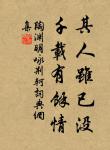 其人雖已沒
千載有餘情
陶淵明詠荊軻詞典網
集